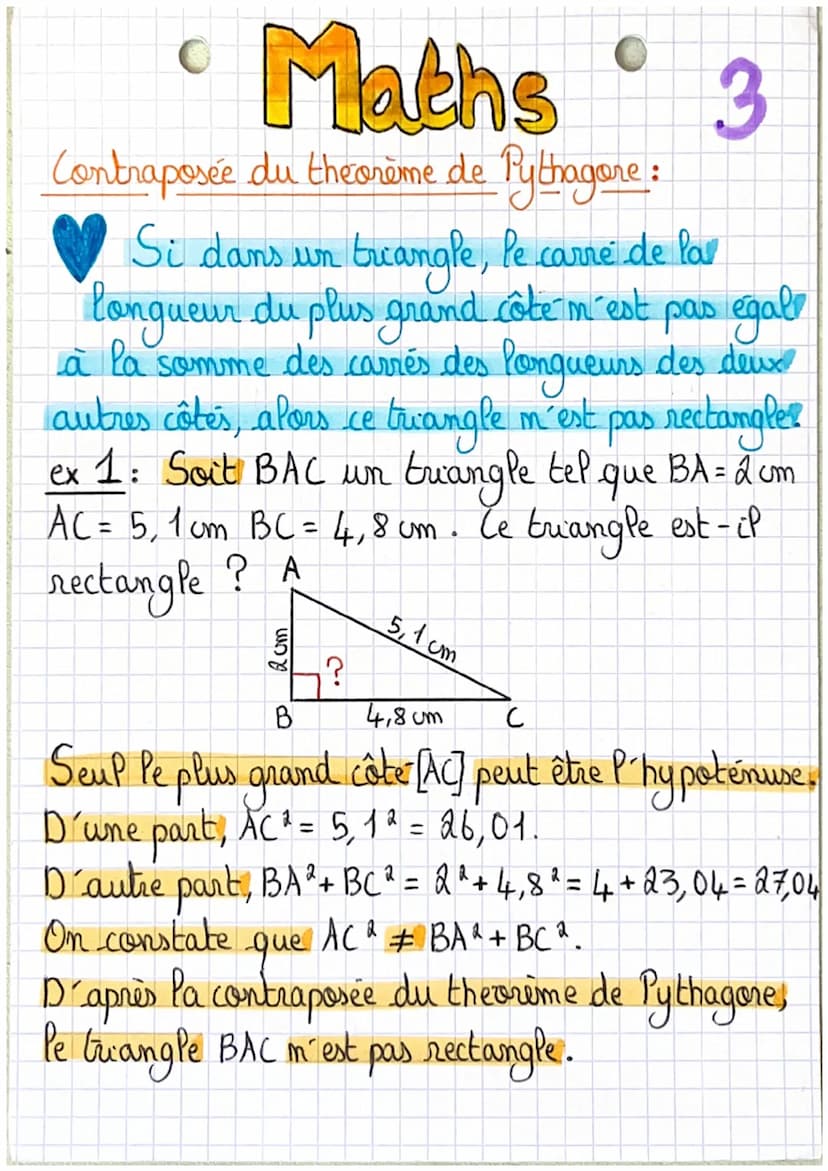 Maths
3
Contraposée du théorème de Pythagore :
Si dans un triangle, le carré de la
longueur du plus grand côté n'est pas égal
à la somme des carrés des longueurs des deux
autres côtés, alors ce triangle n'est pas rectangle.
ex 1 : Soit BAC un triangle tel que BA = 2 cm
AC = 5,1 cm BC = 4,8 cm. Le triangle est-il
rectangle ?
A
5,1 cm
2 cm
?
B
4,8 cm
C
Seul le plus grand côté [AC] peut être l'hypoténuse.
D'une part, AC² = 5,1² = 26,01.
D'autre part, BA² + BC² = 2² + 4,8² = 4 + 23,04 = 27,04
On constate que AC² ≠ BA² + BC².
D'après la contraposée du théorème de Pythagore,
le triangle BAC n'est pas rectangle.